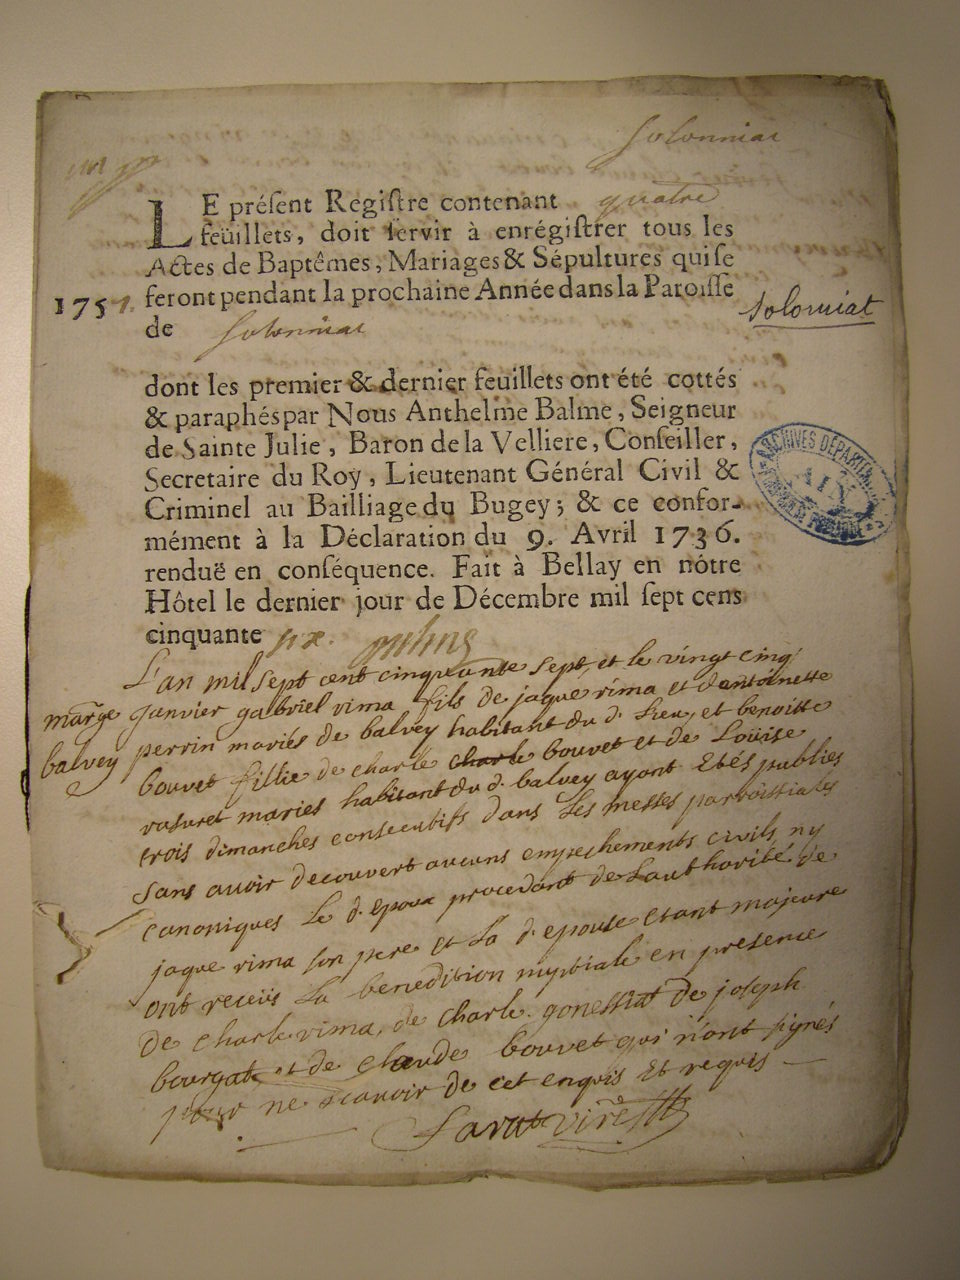 Solonniat
LE présent Regiſtre contenant quatre
feüillets, doit ſervir à enrégiſtrer tous les
Actes de Baptêmes, Mariages & Sépultures qui ſe
1757. feront pendant la prochaine Année dans la Paroiſſe
Solomiat
de Solonniat
dont les premier & dernier feuillets ont été cottés
& paraphés par Nous Anthelme Balme, Seigneur
de Sainte Julie, Baron de la Velliere, Conſeiller,
Secretaire du Roy, Lieutenant Général Civil &
Criminel au Bailliage du Bugey; & ce confor-
mément à la Déclaration du 9. Avril 1736.
renduë en conſéquence. Fait à Bellay en nôtre
Hôtel le dernier jour de Décembre mil ſept cens
cinquante six.
ARCHIVES DÉPARTEM
AIN
L'an mil sept cent cinquante sept, et le vingt cinq
marge janvier gabriel rima fils de jaque rima et d'antoinette
balvey perrin mariés de balvey habitant du d. Lieu, et benoitte
bouvet fillie de charle charle bouvet et de Louise
mariés habitant du d. balvey ayant Etés publiés
trois dimanches consecutifs dans Les messes parroissiales
sans avoir decouvert aucuns empechements civils ny
canoniques Le d. epoux procedant de Lauthorité de
jaque rima son pere et La d. epouse etant majeure
ont receüs La benedition nuptiale en presence
de charle rima, de charle gonessiat de joseph
bourgat et de claude bouvet qui n'ont signés
pour ne scavoir de cet enquis Et requis
Savat vire